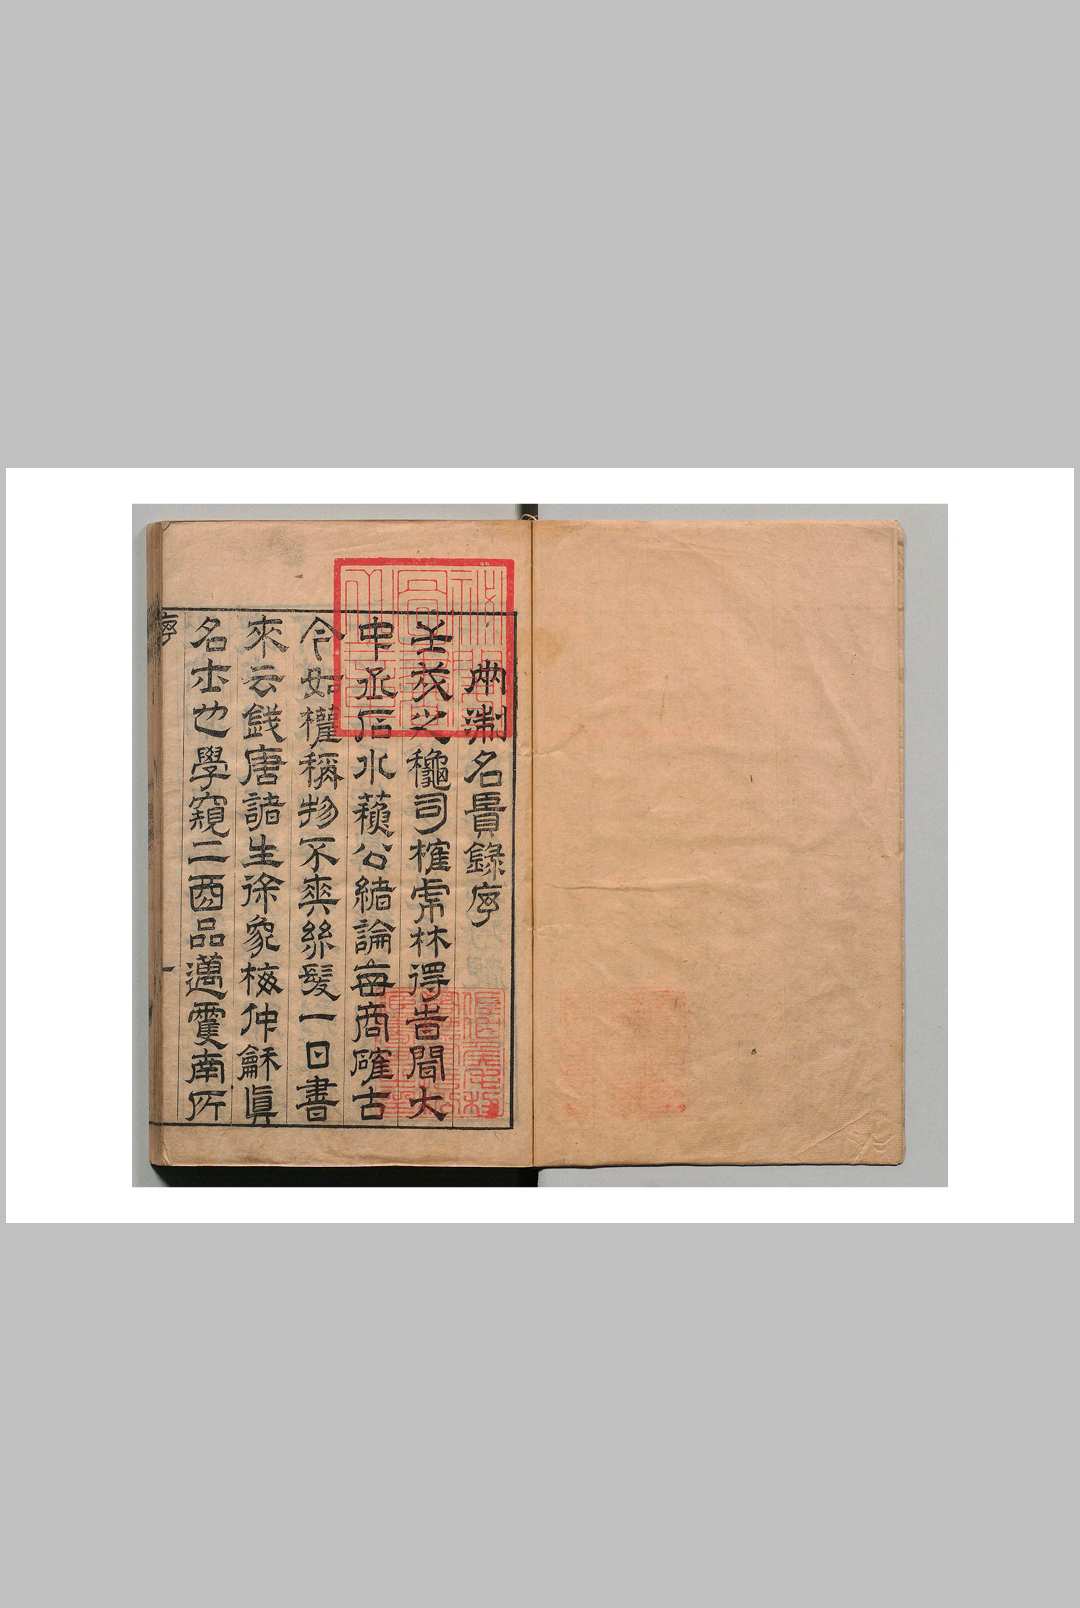 兩淛名賢錄序
壬戌之龝司榷虎林得昔聞大
中丞石水蘋公緒論每商確古
今如權稱物不爽絲髮一日書
來云錢唐諸生徐象梅仲龢眞
名士也學窺二酉品邁雙南所
序
一